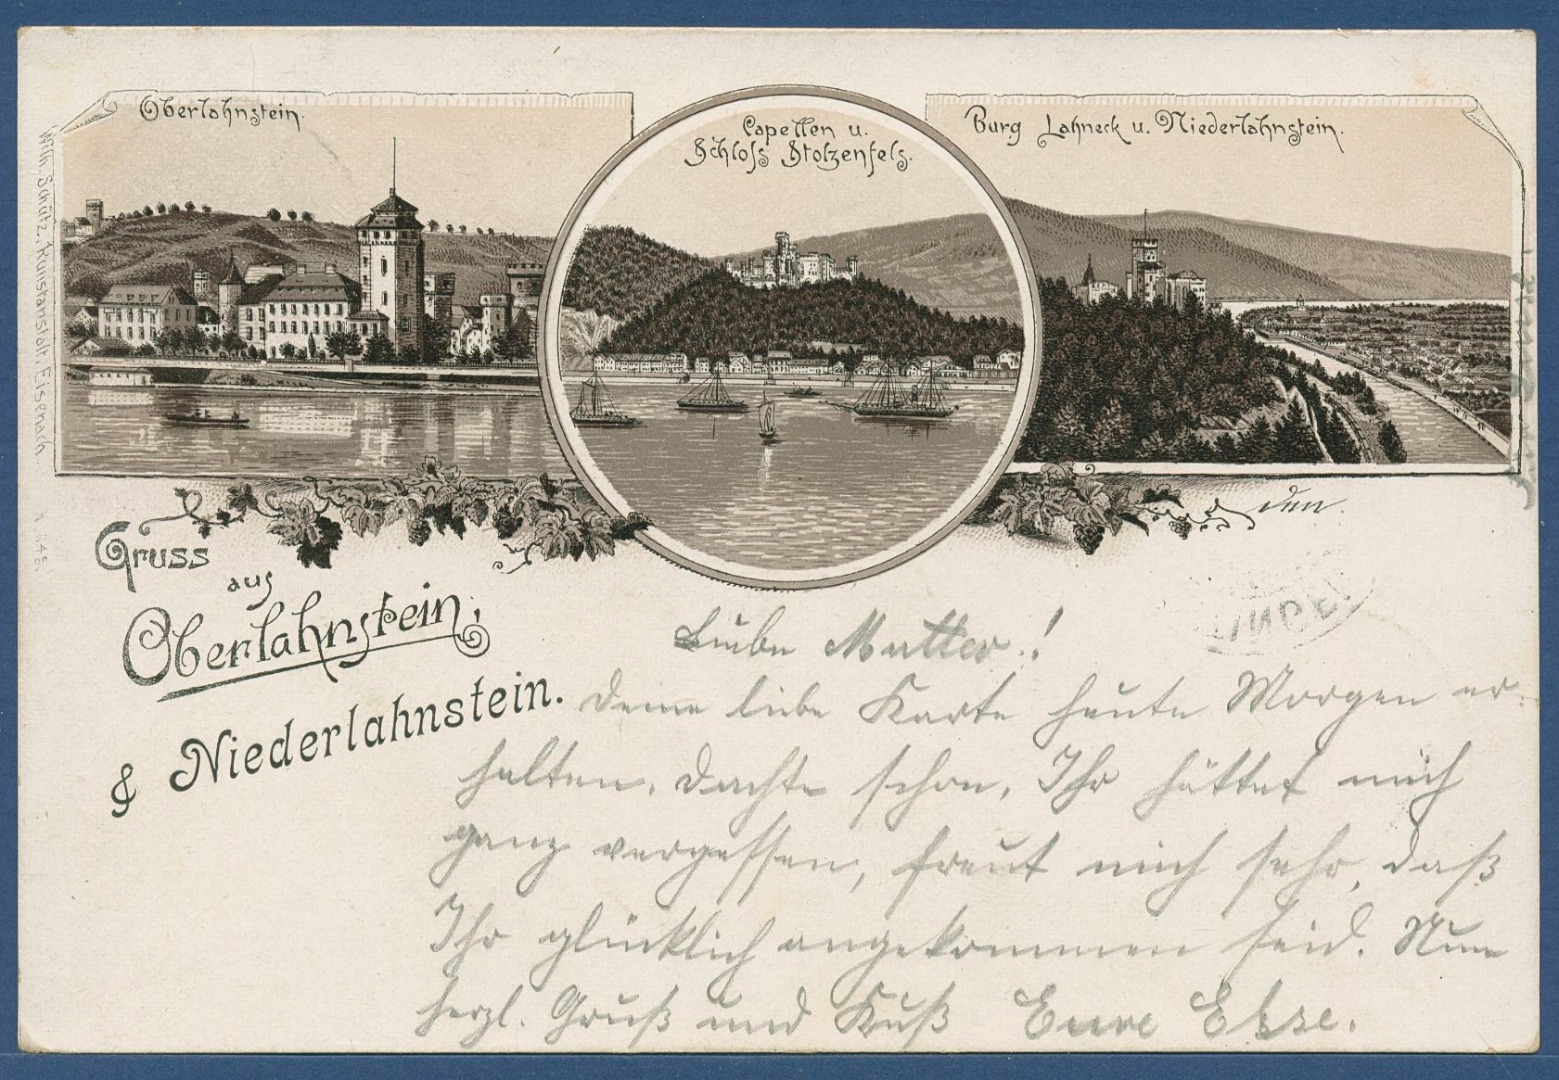 Oberlahnstein.
Capellen u.
Schloss Stolzenfels.
Burg Lahneck u. Niederlahnstein.
Wilh. Schütz, Kunstanstalt, Eisenach.
den
Gruss
aus
Oberlahnstein,
& Niederlahnstein.
Liebe Mutter!
Deine liebe Karte heute Morgen er-
halten. Dachte schon, Ihr hättet mich
ganz vergessen, freut mich sehr, daß
Ihr glücklich angekommen seid. Nun
herzl. Gruß und Kuß Eure Else.